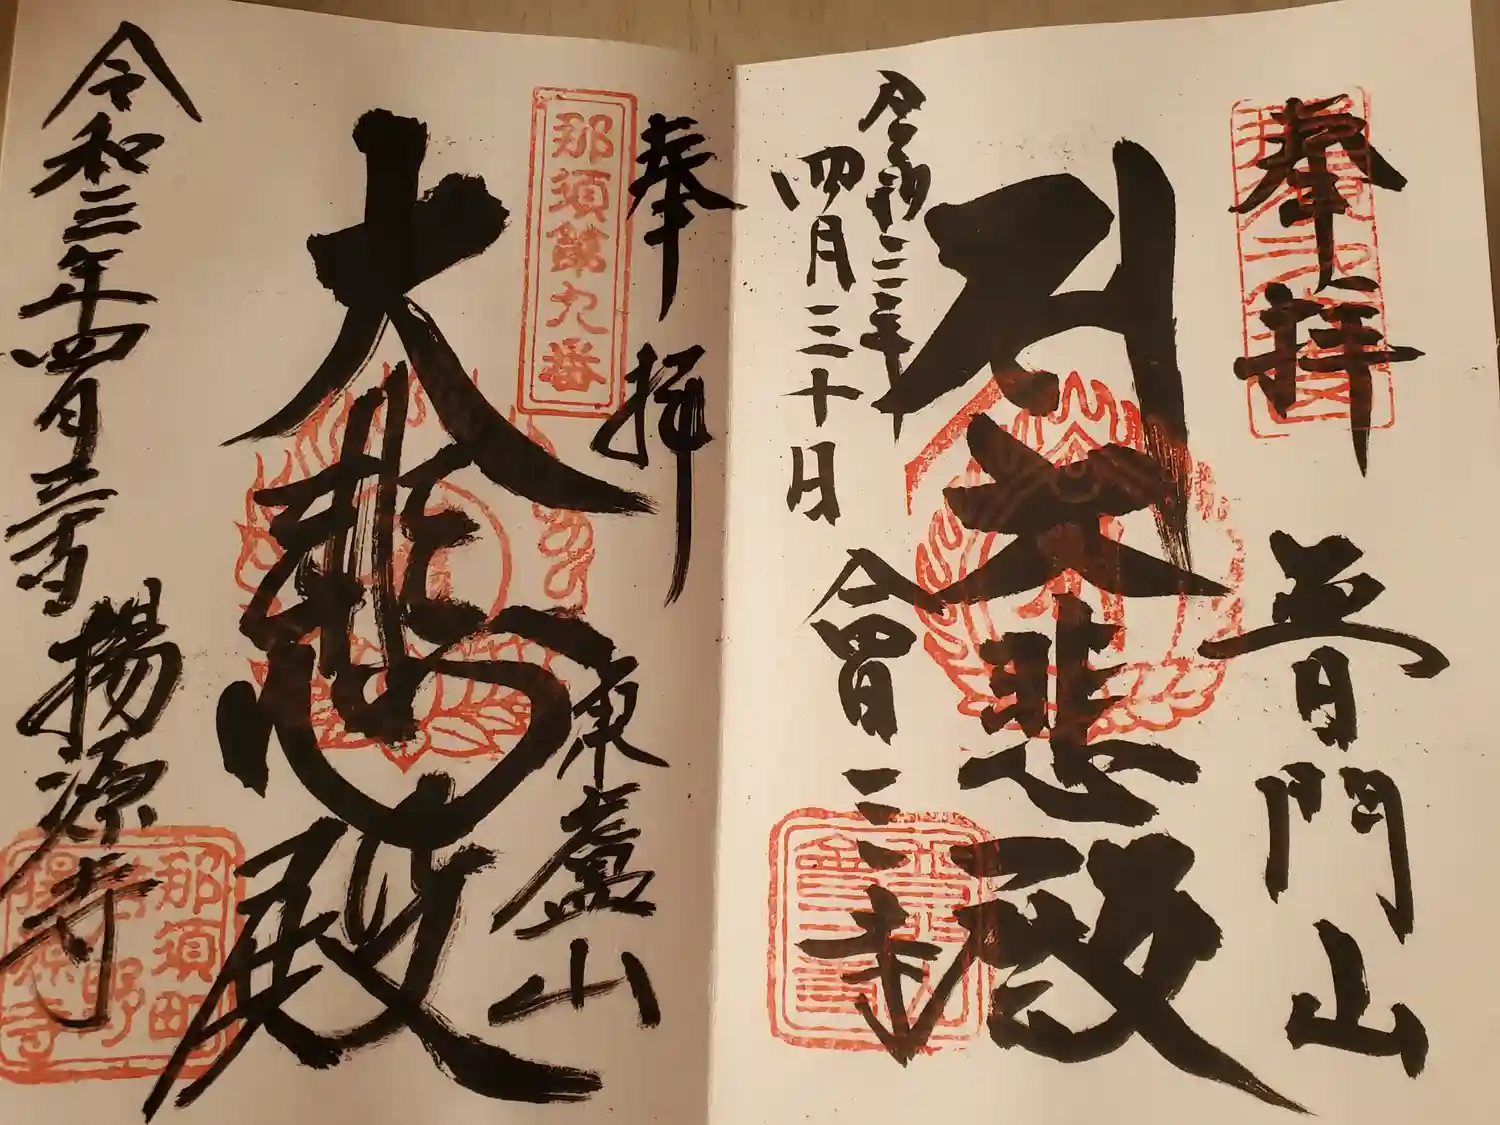 奉拝
普門山
大悲殿
令和三年
四月三十日
會三寺
奉拝
那須第九番
東蘆山
大悲殿
令和三年四月三十日
揚源寺
那須町
芦野
揚源寺